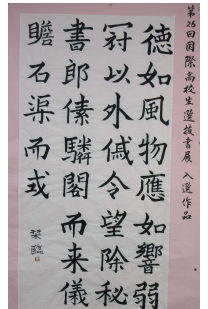 第25回国際高校生選抜書展 入選作品
徳如風物應如響弱
冠以外戚令望除秘
書郎傃驎閣而来儀
瞻石渠而或
栞臨